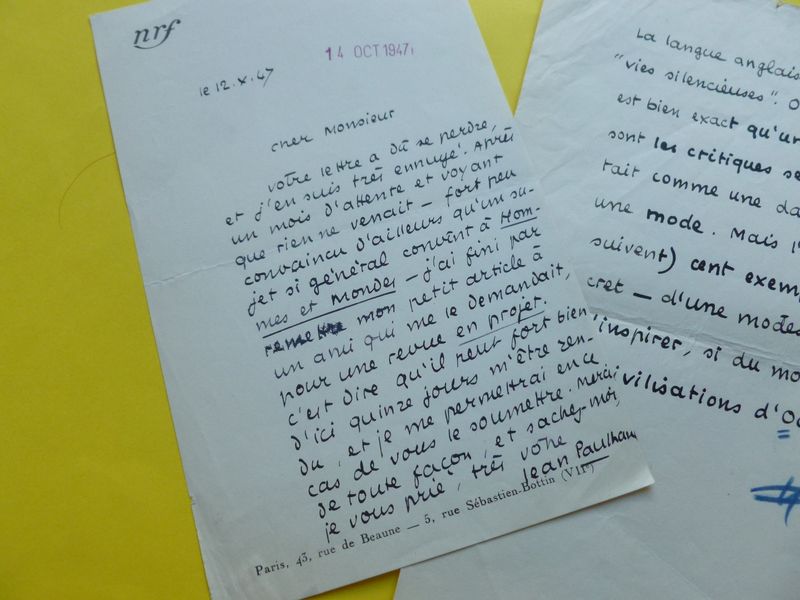 nrf
14 OCT 1947
le 12.X.47
cher Monsieur
votre lettre a dû se perdre,
et j'en suis très ennuyé. Après
un mois d'attente et voyant
que rien ne venait — fort peu
convaincu d'ailleurs qu'un su-
jet si général convînt à Hom-
mes et Mondes — j'ai fini par
remettre mon petit article à
un ami qui me le demandait,
pour une revue en projet.
c'est dire qu'il peut fort bien
d'ici quinze jours m'être ren-
du, et je me permettrai en ce
cas de vous le soumettre. Merci
de toute façon, et sachez-moi,
je vous prie, très vôtre
Jean Paulhan
Paris, 43, rue de Beaune — 5, rue Sébastien-Bottin (VIIe)
La langue anglais
"vies silencieuses". O
est bien exact qu'un
sont les critiques se
tait comme une da
une mode. Mais l'
suivent) cent exemp
cret — d'une modes
inspirer, si du mo
vilisations d'Oc